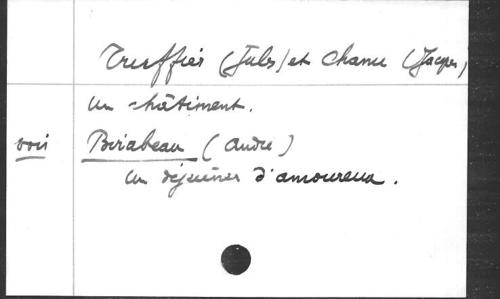 Truffier (Jules) et Chanu (Jacques)
un châtiment.
voir Birabeau (André)
un déjeuner d'amoureux.